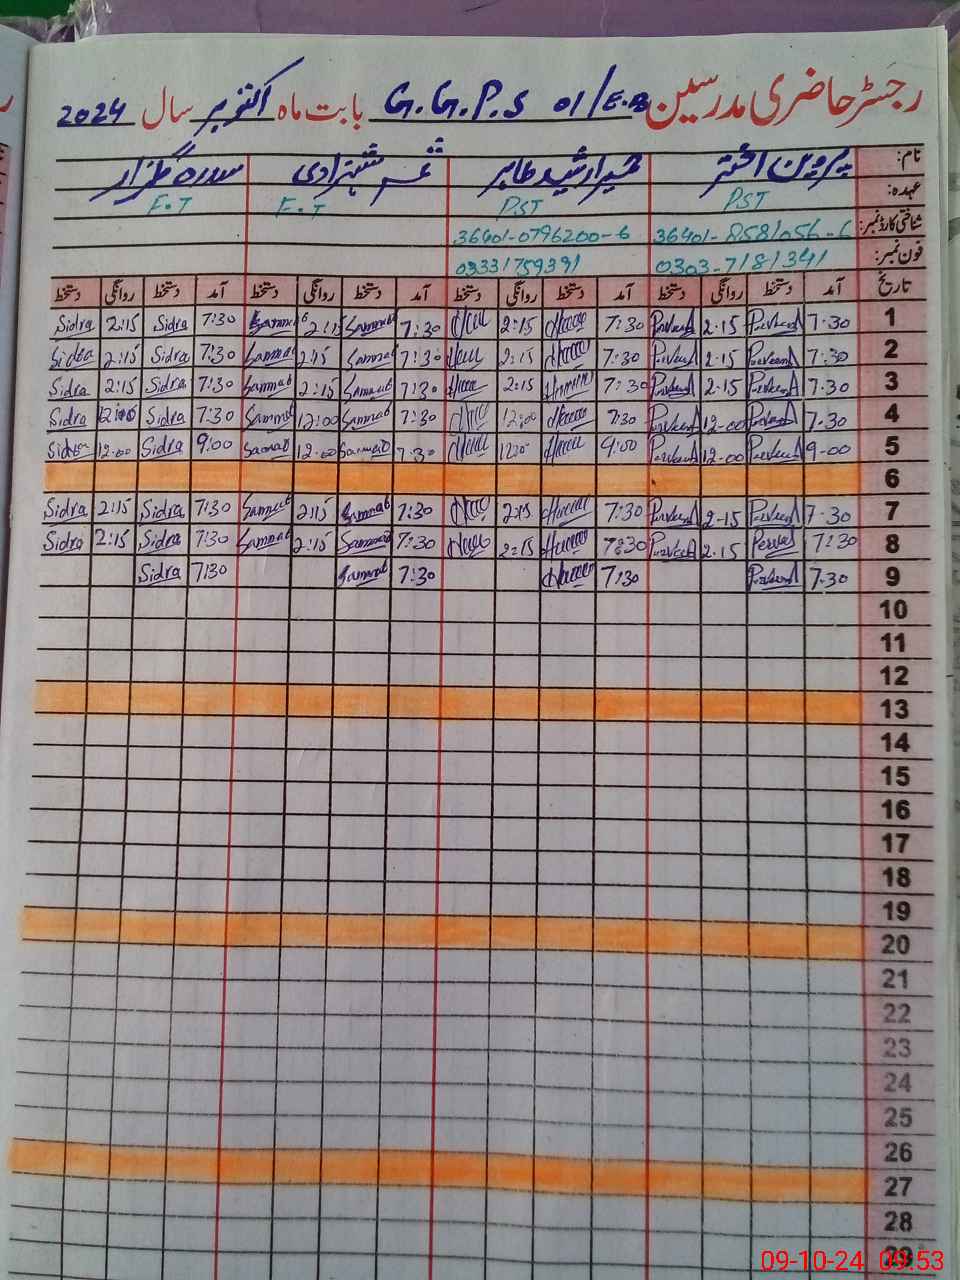 رجسٹر حاضری مدرسین G.G.P.S 01/E.B بابت ماہ اکتوبر سال 2024
نام: پروین اختر حمیرا رشید طاہر شہزادی سدرہ گلزار
عہدہ: PST PST F.T F.T
شناختی کارڈ نمبر: 36401-8581056-6 36401-0796200-6
فون نمبر: 0303-7181341 03331759391
تاریخ آمد دستخط روانگی دستخط آمد دستخط روانگی دستخط آمد دستخط روانگی دستخط آمد دستخط روانگی دستخط
1 7-30 Parveen 2-15 Parveen 7:30 2:15 7:30 Sammab 2:15 Sammab 7:30 Sidra 2:15 Sidra
2 7-30 Parveen 2-15 Parveen 7:30 2:15 7:30 Sammab 2:15 Sammab 7:30 Sidra 2:15 Sidra
3 7-30 Parveen 2-15 Parveen 7:30 2:15 7:30 Sammab 2:15 Sammab 7:30 Sidra 2:15 Sidra
4 7-30 Parveen 12-00 Parveen 7:30 12:00 7:30 Sammab 12:00 Sammab 7:30 Sidra 12:00 Sidra
5 9-00 Parveen 12-00 Parveen 9:00 12:00 7:30 Sammab 12:00 Sammab 9:00 Sidra 12:00 Sidra
6
7 7-30 Parveen 2-15 Parveen 7:30 2:15 7:30 Sammab 2:15 Sammab 7:30 Sidra 2:15 Sidra
8 7:30 Parveen 2-15 Parveen 7:30 2:15 7:30 Sammab 2:15 Sammab 7:30 Sidra 2:15 Sidra
9 7-30 Parveen 7:30 7:30 Sammab 7:30 Sidra
10
11
12
13
14
15
16
17
18
19
20
21
22
23
24
25
26
27
28
29
09-10-24 09:53